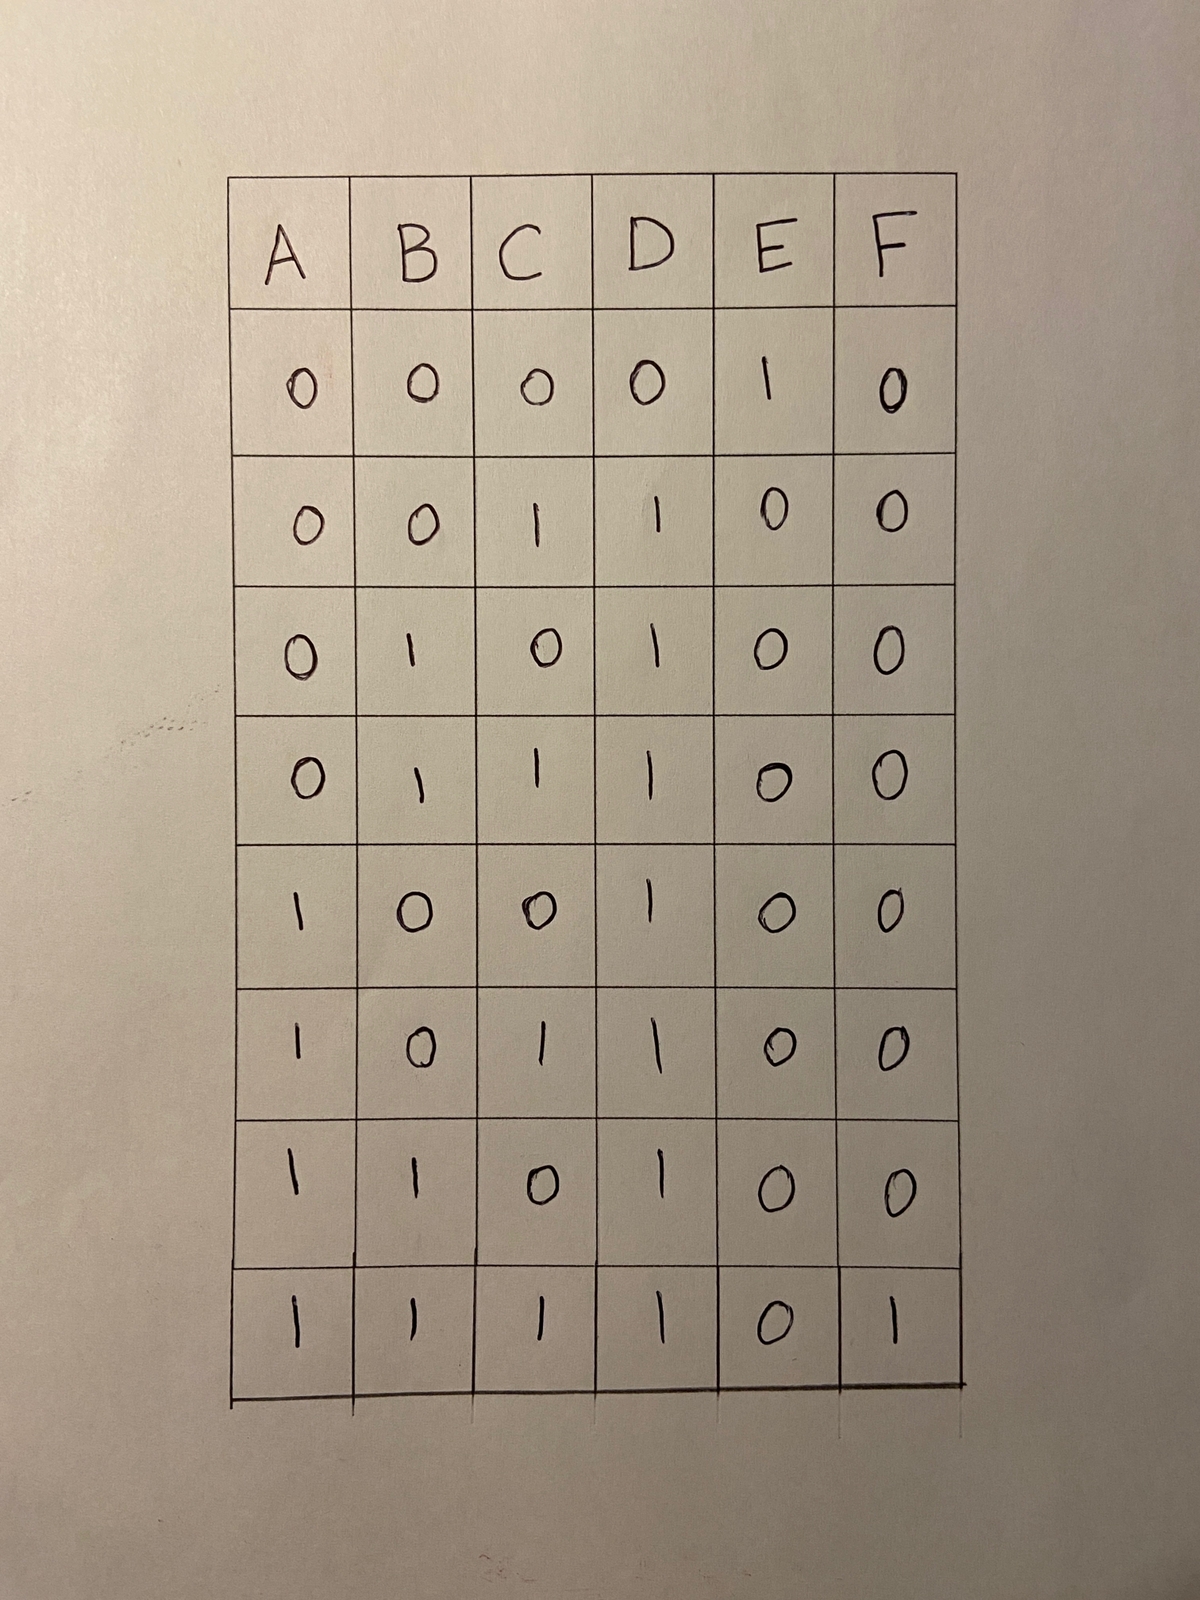 A B C D E F
0 0 0 0 1 0
0 0 1 1 0 0
0 1 0 1 0 0
0 1 1 1 0 0
1 0 0 1 0 0
1 0 1 1 0 0
1 1 0 1 0 0
1 1 1 1 0 1